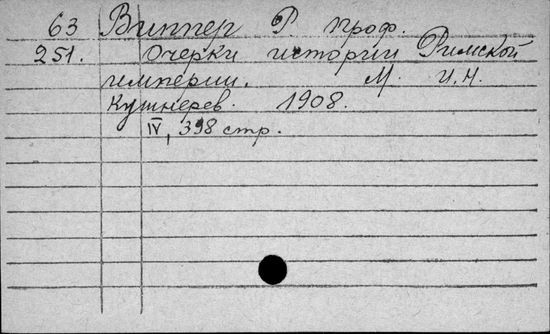 63 Виппер Р. проф.
251. Очерки истории Римской
империи. М. И.Н.
Кушнерев. 1908.
IV, 398 стр.